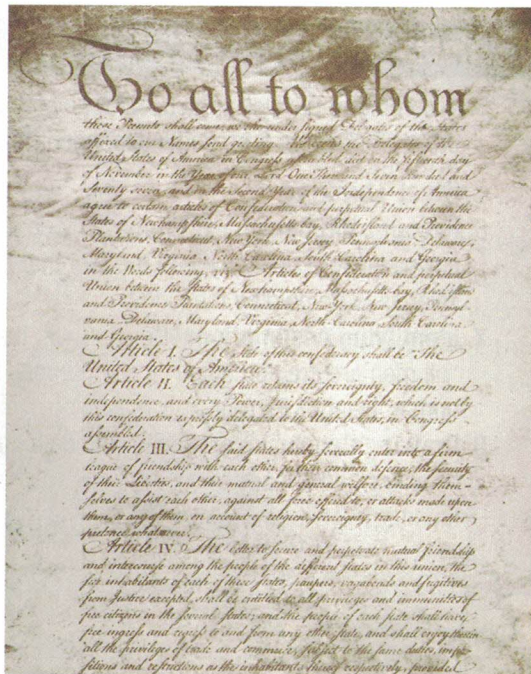 To all to whom
these Presents shall come, we the under signed Delegates of the States
affixed to our Names send greeting. Whereas the Delegates of the
United States of America in Congress assembled did on the fifteenth day
of November in the Year of our Lord One Thousand Seven Hundred and
Seventy seven, and in the Second Year of the Independence of America
agree to certain articles of Confederation and perpetual Union between the
States of Newhampshire, Massachusetts-bay, Rhodeisland and Providence
Plantations, Connecticut, New York, New Jersey, Pennsylvania, Delaware,
Maryland, Virginia, North-Carolina, South-Carolina and Georgia
in the Words following, viz. Articles of Confederation and perpetual
Union between the States of Newhampshire, Massachusetts-bay, Rhodeisland
and Providence Plantations, Connecticut, New-York, New-Jersey, Pennsyl-
vania, Delaware, Maryland, Virginia, North-Carolina, South-Carolina
and Georgia.
Article I. The Stile of this confederacy shall be "The
United States of America."
Article II. Each state retains its sovereignty, freedom and
independence, and every Power, Jurisdiction and right, which is not by
this confederation expressly delegated to the United States, in Congress
assembled.
Article III. The said states hereby severally enter into a firm
league of friendship with each other, for their common defence, the security
of their Liberties, and their mutual and general welfare, binding them-
selves to assist each other, against all force offered to, or attacks made upon
them, or any of them, on account of religion, sovereignty, trade, or any other
pretence whatever.
Article IV. The better to secure and perpetuate mutual friendship
and intercourse among the people of the different states in this union, the
free inhabitants of each of these states, paupers, vagabonds and fugitives
from Justice excepted, shall be entitled to all privileges and immunities of
free citizens in the several states; and the people of each state shall have
free ingress and regress to and from any other state, and shall enjoy therein
all the privileges of trade and commerce, subject to the same duties, impo-
sitions and restrictions as the inhabitants thereof respectively, provided